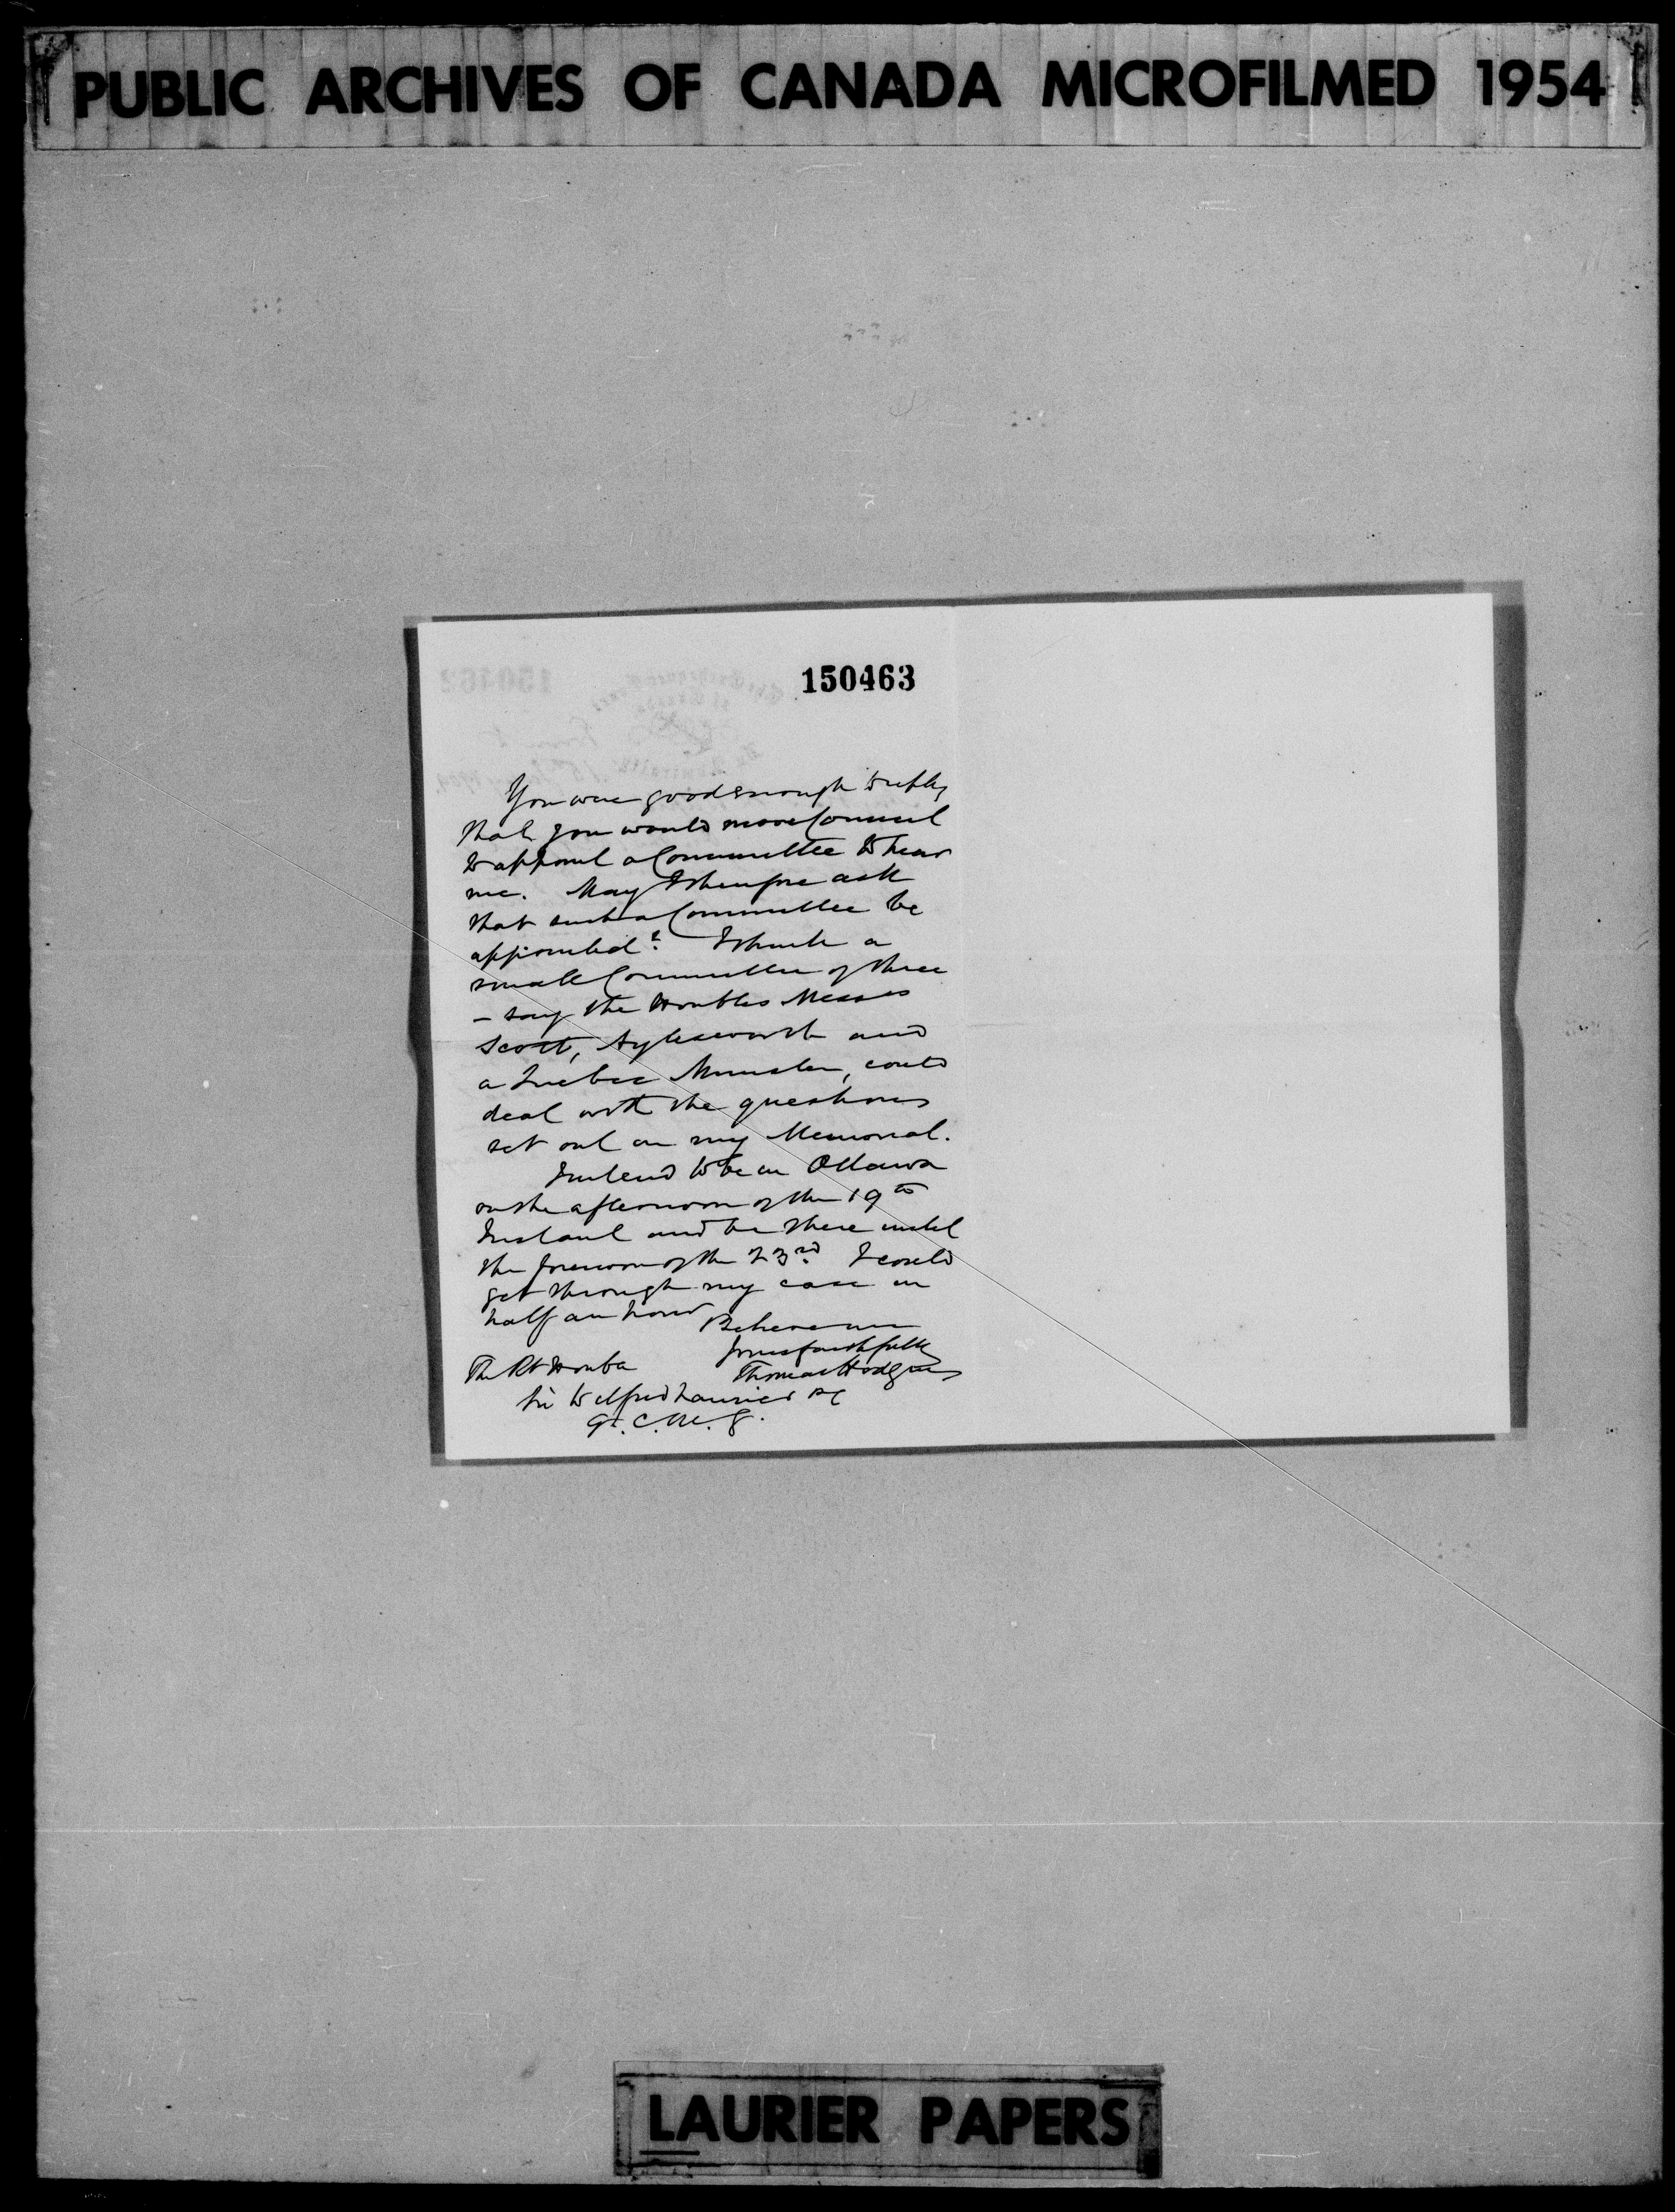 PUBLIC ARCHIVES OF CANADA MICROFILMED 1954
150463
You were good enough to reply
that you would move Council
to appoint a Committee to hear
me. May I therefore ask
that such a Committee be
appointed? I think a
small Committee of three
- say the Honbles Messrs
Scott, Aylesworth and
a Quebec Minister, could
deal with the questions
set out in my Memorial.
I intend to be in Ottawa
on the afternoon of the 19th
Instant and be there until
the forenoon of the 23rd. I could
get through my case in
half an hour
Believe me
Yours faithfully
Thomas Hodgins
The Rt Honble
Sir Wilfrid Laurier PC
G.C.M.G.
LAURIER PAPERS